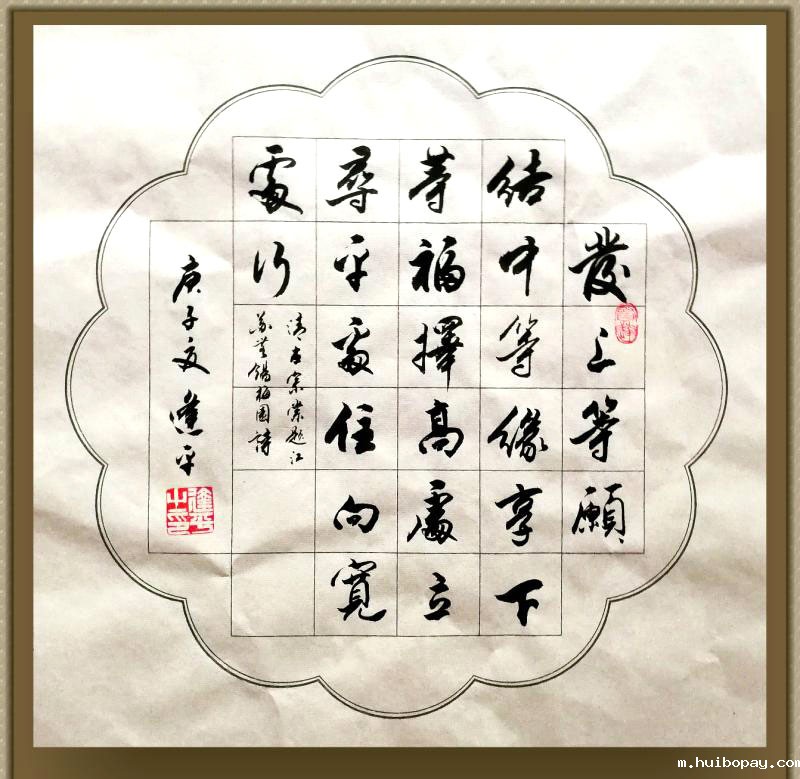 發上等願
結中等緣享下
等福擇高處立
尋平處住向寬
處行
清左宗棠題江
蘇無錫梅園詩
庚子夏蓬平
m.huibopay.com